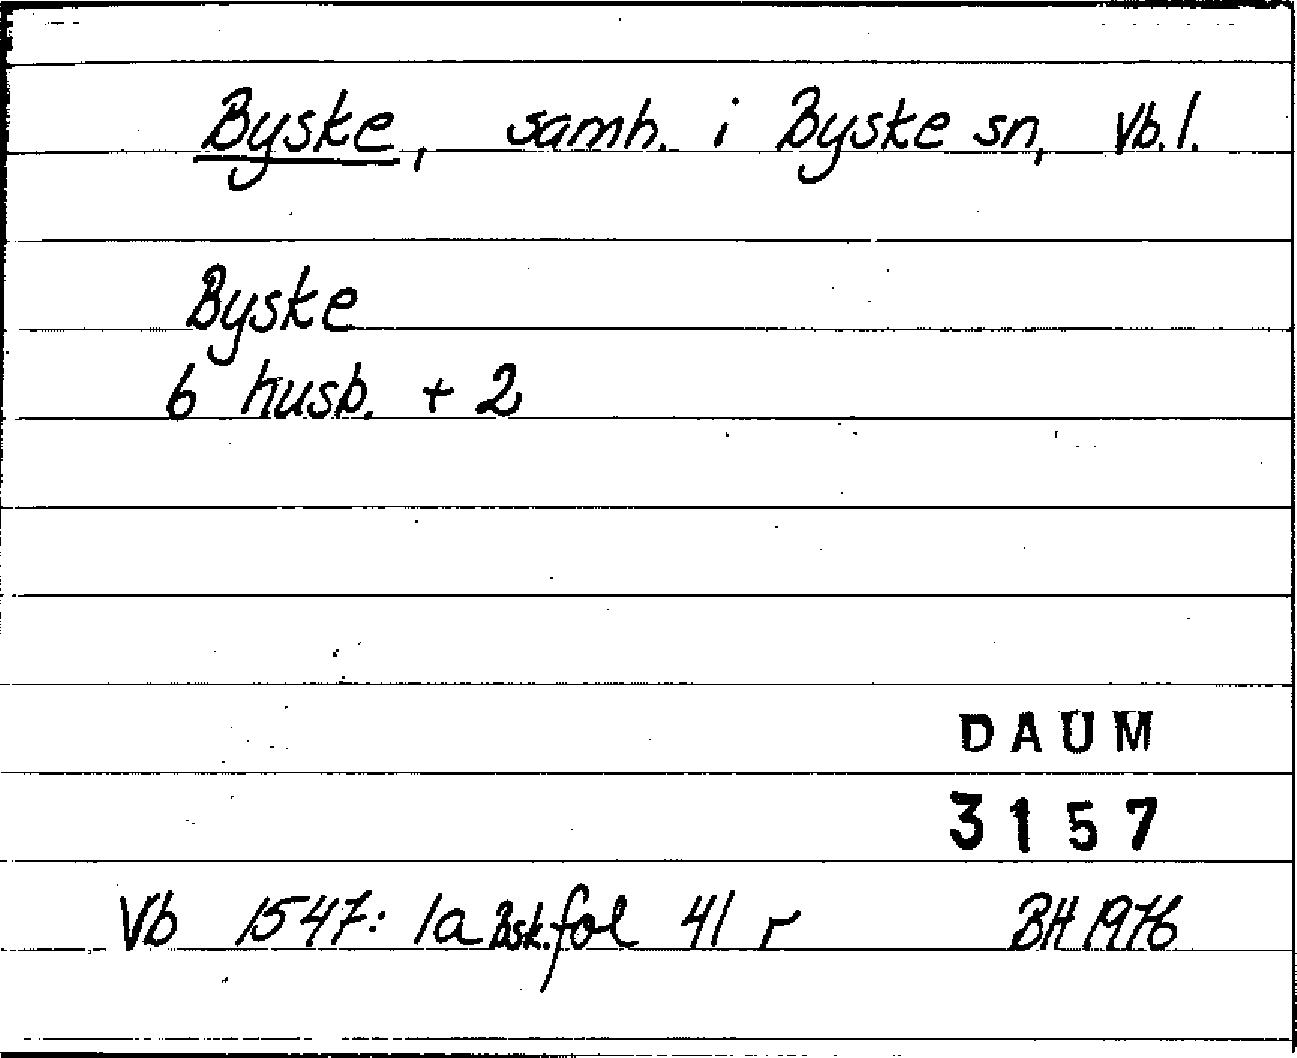 Byske, samh. i Byske sn, Vb.l.
Byske
6 husb. + 2
DAUM
3157
Vb 1547: 1a Bsk.fol 41 r BH 1976